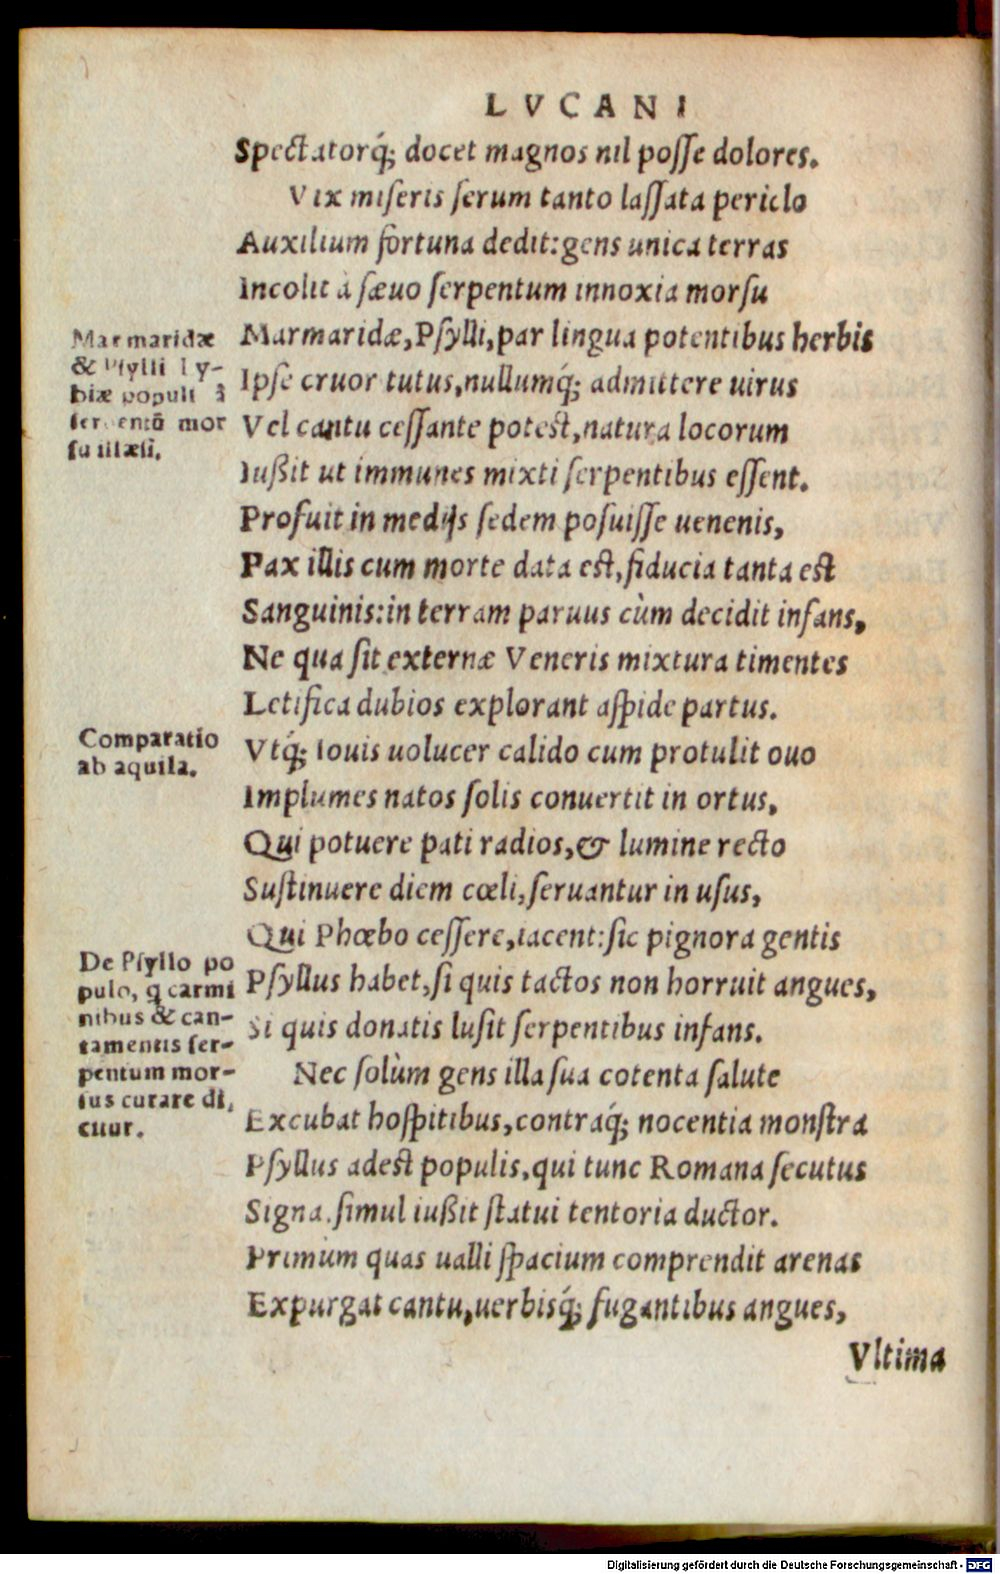 LVCANI
Spectatorq́; docet magnos nil posse dolores.
Vix miseris serum tanto lassata periclo
Auxilium fortuna dedit: gens unica terras
Incolit à sæuo serpentum innoxia morsu
Marmaridæ, Psylli, par lingua potentibus herbis
Ipse cruor tutus, nullumq́; admittere uirus
Vel cantu cessante potest, natura locorum
Iußit ut immunes mixti serpentibus essent.
Profuit in medijs sedem posuisse uenenis,
Pax illis cum morte data est, fiducia tanta est
Sanguinis: in terram paruus cùm decidit infans,
Ne qua sit externæ Veneris mixtura timentes
Letifica dubios explorant aspide partus.
Vtq́; Iouis uolucer calido cum protulit ouo
Implumes natos solis conuertit in ortus,
Qui potuere pati radios, & lumine recto
Sustinuere diem cœli, seruantur in usus,
Qui Phœbo cessere, iacent: sic pignora gentis
Psyllus habet, si quis tactos non horruit angues,
Si quis donatis lusit serpentibus infans.
Nec solùm gens illa sua cotenta salute
Excubat hospitibus, contraq́; nocentia monstra
Psyllus adest populis, qui tunc Romana secutus
Signa, simul iußit statui tentoria ductor.
Primùm quas ualli spacium comprendit arenas
Expurgat cantu, uerbisq́; fugantibus angues,
Vltima
Marmaridæ
& Psylli Ly-
biæ populi à
serpentū mor
su illæsi.
Comparatio
ab aquila.
De Psyllo po
pulo, q carmi
nibus & can-
tamentis ser-
pentum mor-
sus curare di,
cuur.
Digitalisierung gefördert durch die Deutsche Forschungsgemeinschaft - DFG